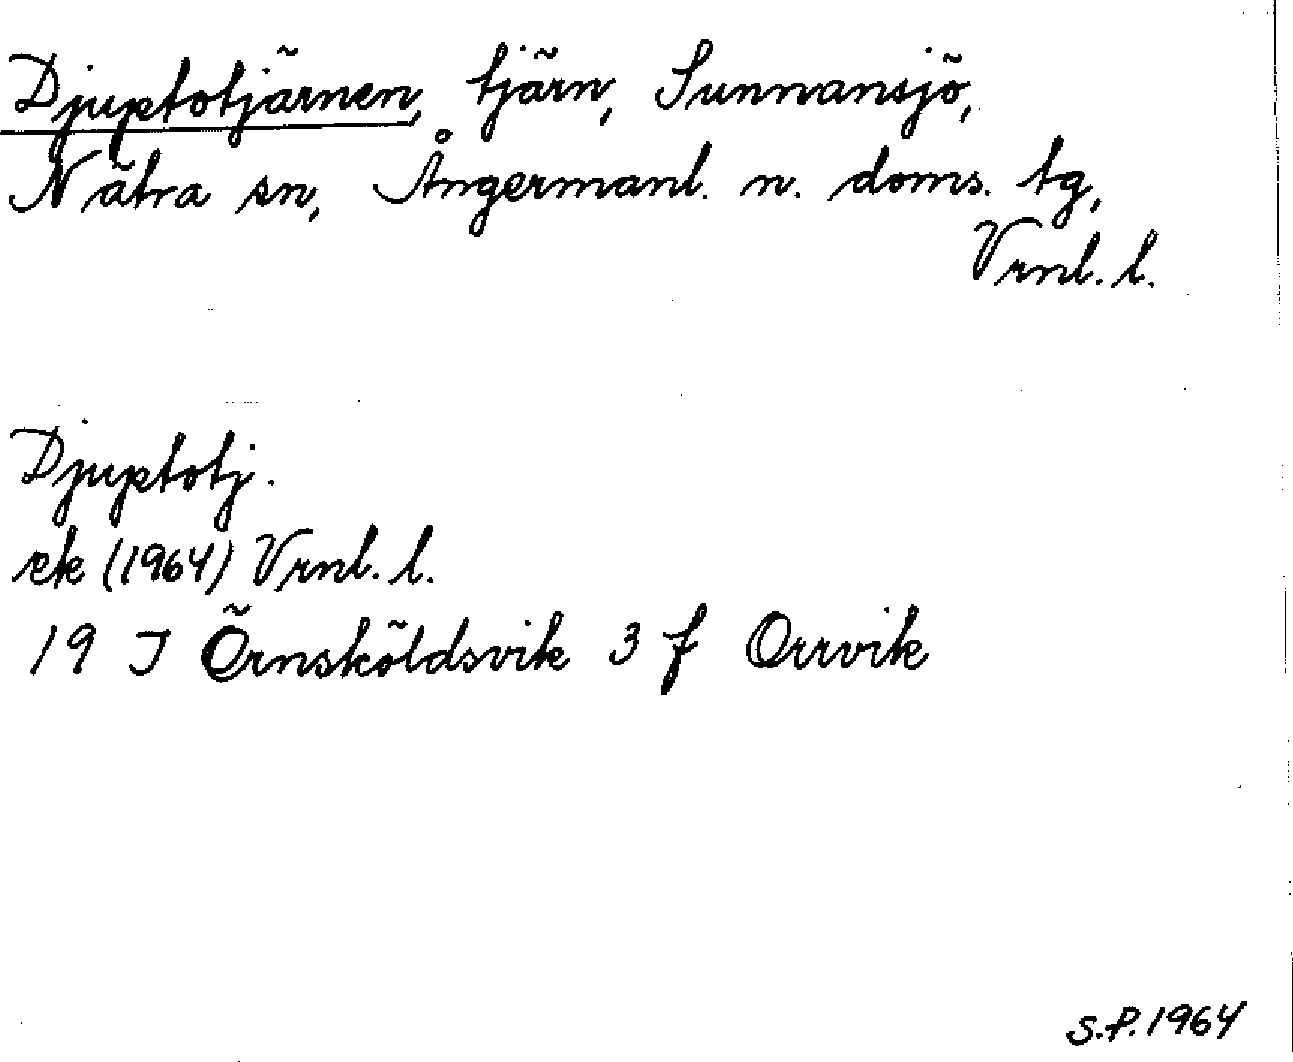 Djuptotjärnen, tjärn, Sunnansjö,
Nätra sn, Ångermanl. n. doms. tg,
Vrnl. l.
Djuptotj.
ek (1964) Vrnl. l.
19 J Örnsköldsvik 3 f Orrvik
S.P. 1964